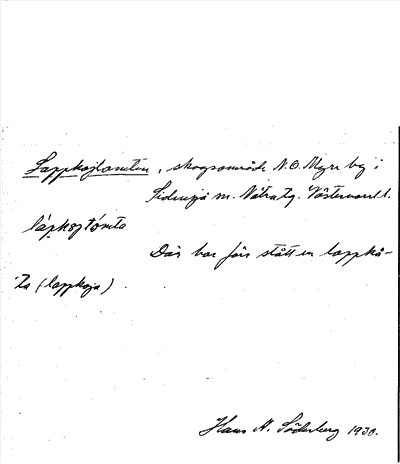 Lappkojtomten, skogsområde N.O. Myre by i
Sidensjö sn. Nätra tg. Västernorrl. l.
lápkojtómta
Där har förr stått en lappkå-
ta (lappkoja).
Hans A. Söderberg 1930.